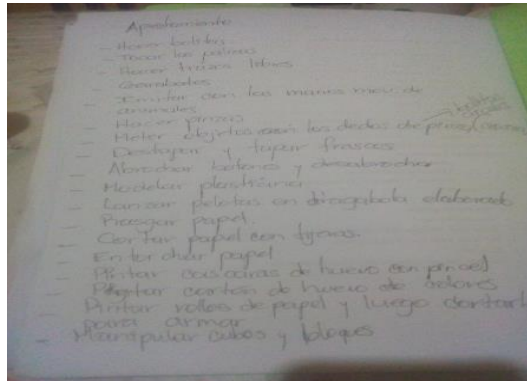 Aprestamiento
- Hacer bolitas
- Tocar las palmas
- Hacer trazos libres
- Garabatos
- Imitar con las manos mov. de
animales
- Hacer pinzas
- Meter objetos con los dedos de pinza
- Destapar y tapar frascos
- Abrochar botones y desabrochar
- Modelar plastilina
- Lanzar pelotas en tragabola elaborado
- Rasgar papel.
- Cortar papel con tijeras.
- Entorchar papel
- Pintar cascaras de huevo con pincel
- Pintar carton de huevo de colores
- Pintar rollos de papel y luego cortar
para armar
- Manipular cubos y bloques